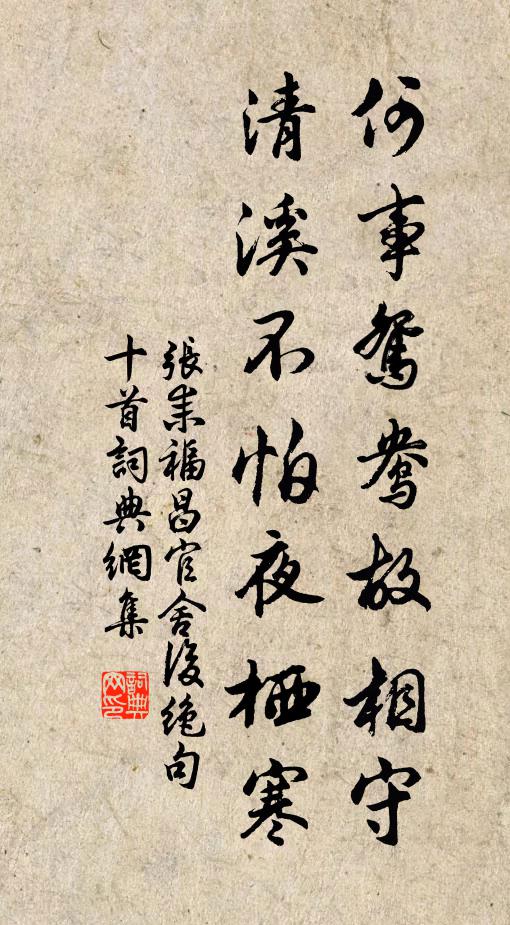 何事鴛鴦故相守
清溪不怕夜栖寒
張耒福昌官舍後絕句
十首詞典網集
詞典網印